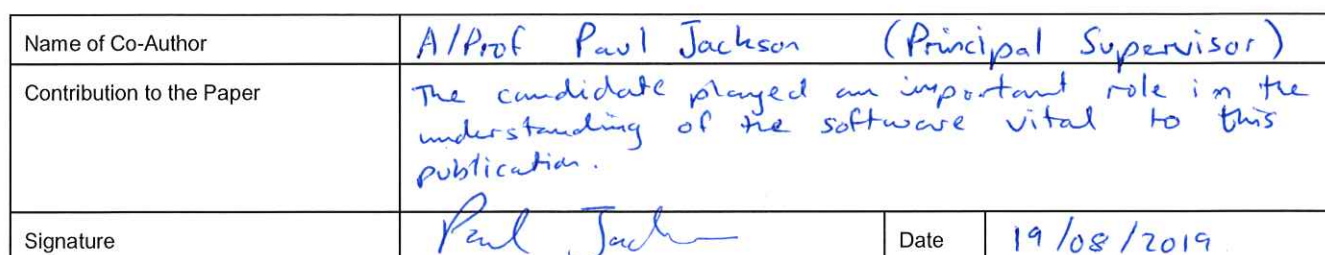 Name of Co-Author A/Prof Paul Jackson (Principal Supervisor)
Contribution to the Paper The candidate played an important role in the
understanding of the software vital to this
publication.
Signature Paul Jack Date 19/08/2019